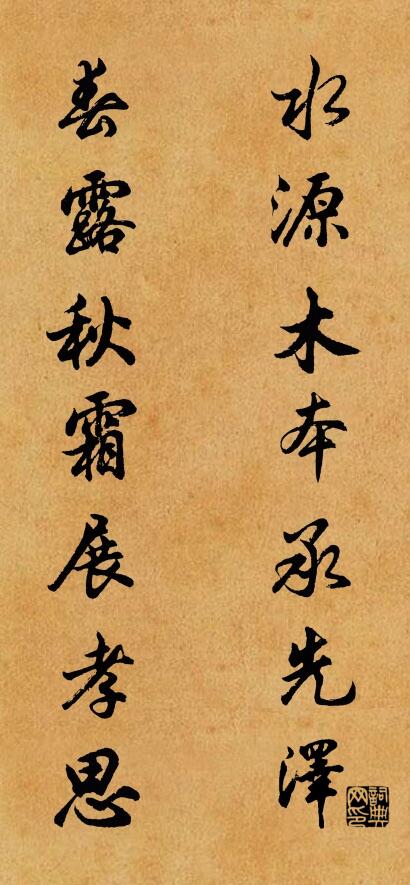 水源木本承先澤
春露秋霜展孝思
詞典網印